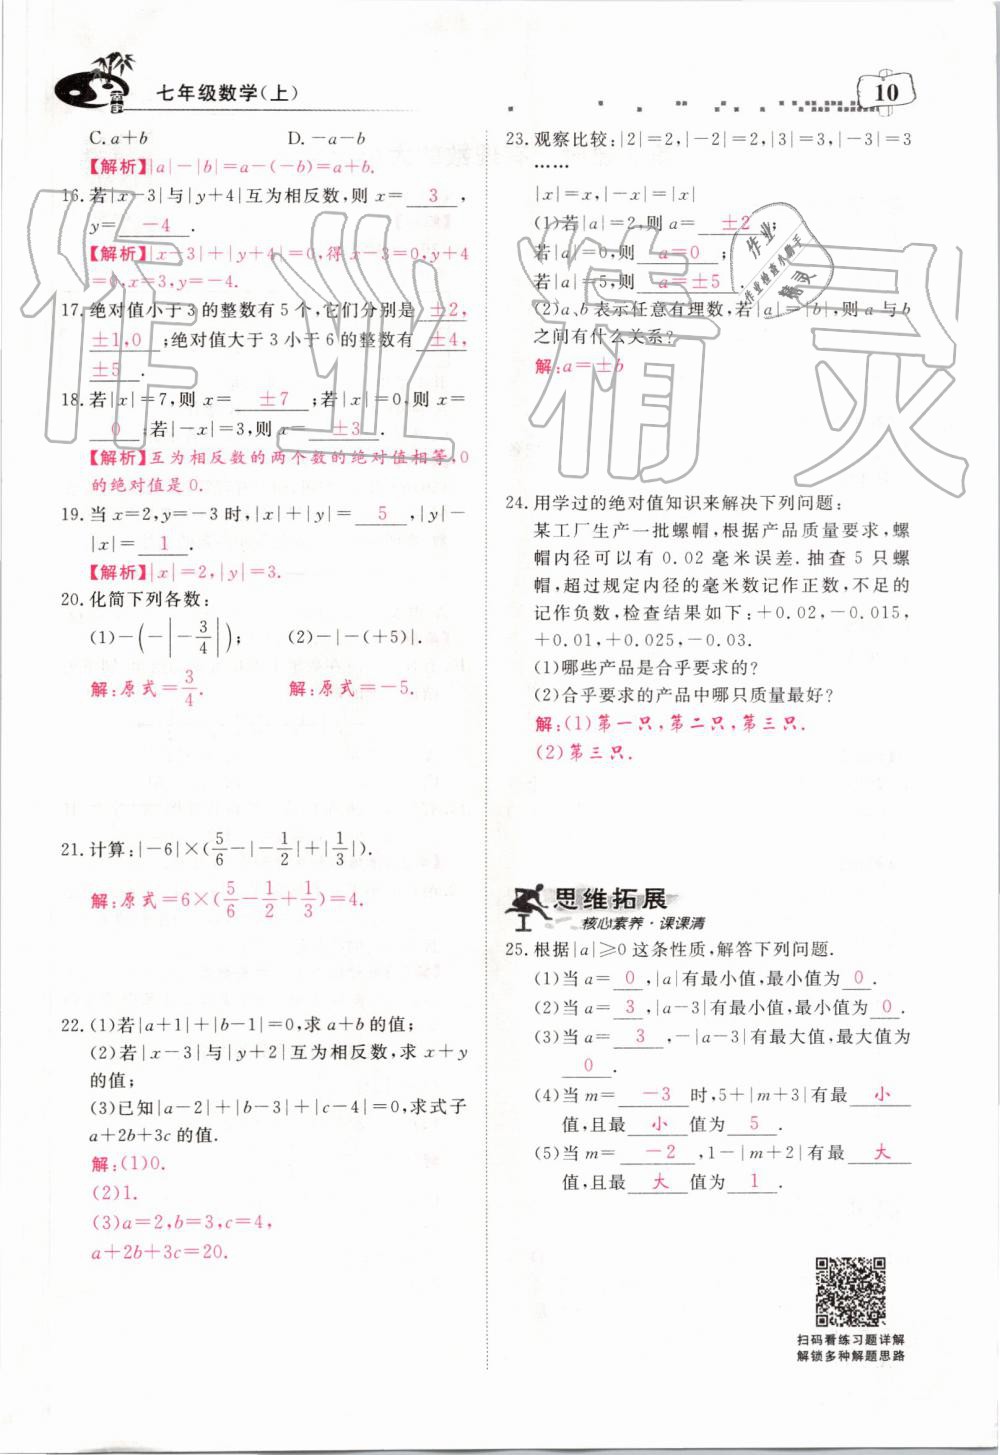 七年级数学(上)
10
C. a+b  D. -a-b
【解析】|a|-|b|=a-(-b)=a+b.
16. 若|x-3|与|y+4|互为相反数,则 x= 3 ,
y= -4 .
【解析】|x-3|+|y+4|=0,得 x-3=0,y+4
=0,x=3,y=-4.
17. 绝对值小于 3 的整数有 5 个,它们分别是 ±2,
±1,0 ;绝对值大于 3 小于 6 的整数有 ±4,
±5 .
18. 若|x|=7,则 x= ±7 ;若|x|=0,则 x=
0 ;若|-x|=3,则 x= ±3 .
【解析】互为相反数的两个数的绝对值相等,0
的绝对值是 0.
19. 当 x=2,y=-3 时,|x|+|y|= 5 ,|y|-
|x|= 1 .
【解析】|x|=2,|y|=3.
20. 化简下列各数:
(1)-(-|-3/4|);  (2)-|-(+5)|.
解:原式=3/4.  解:原式=-5.
21. 计算:|-6|×(5/6-|-1/2|+|1/3|).
解:原式=6×(5/6-1/2+1/3)=4.
22. (1)若|a+1|+|b-1|=0,求 a+b 的值;
(2)若|x-3|与|y+2|互为相反数,求 x+y
的值;
(3)已知|a-2|+|b-3|+|c-4|=0,求式子
a+2b+3c 的值.
解:(1)0.
(2)1.
(3)a=2,b=3,c=4,
a+2b+3c=20.
23. 观察比较:|2|=2,|-2|=2,|3|=3,|-3|=3
……
|x|=x,|-x|=|x|
(1)若|a|=2,则 a= ±2 ;
若|a|=0,则 a=0 ;
若|a|=5,则 a=±5 .
(2)a、b 表示任意有理数,若|a|=|b|,则 a 与 b
之间有什么关系?
解:a=±b
24. 用学过的绝对值知识来解决下列问题:
某工厂生产一批螺帽,根据产品质量要求,螺
帽内径可以有 0.02 毫米误差. 抽查 5 只螺
帽,超过规定内径的毫米数记作正数,不足的
记作负数,检查结果如下:+0.02,-0.015,
+0.01,+0.025,-0.03.
(1)哪些产品是合乎要求的?
(2)合乎要求的产品中哪只质量最好?
解:(1)第一只,第二只,第三只.
(2)第三只.
思维拓展
核心素养·课课清
25. 根据|a|≥0 这条性质,解答下列问题.
(1)当 a= 0 ,|a|有最小值,最小值为 0 .
(2)当 a= 3 ,|a-3|有最小值,最小值为 0 .
(3)当 a= 3 ,-|a-3|有最大值,最大值为
0 .
(4)当 m= -3 时,5+|m+3|有最 小
值,且最 小 值为 5 .
(5)当 m= -2 ,1-|m+2|有最 大
值,且最 大 值为 1 .
扫码看练习题详解
解锁多种解题思路
作业精灵
作业
作业检查小助手
精灵